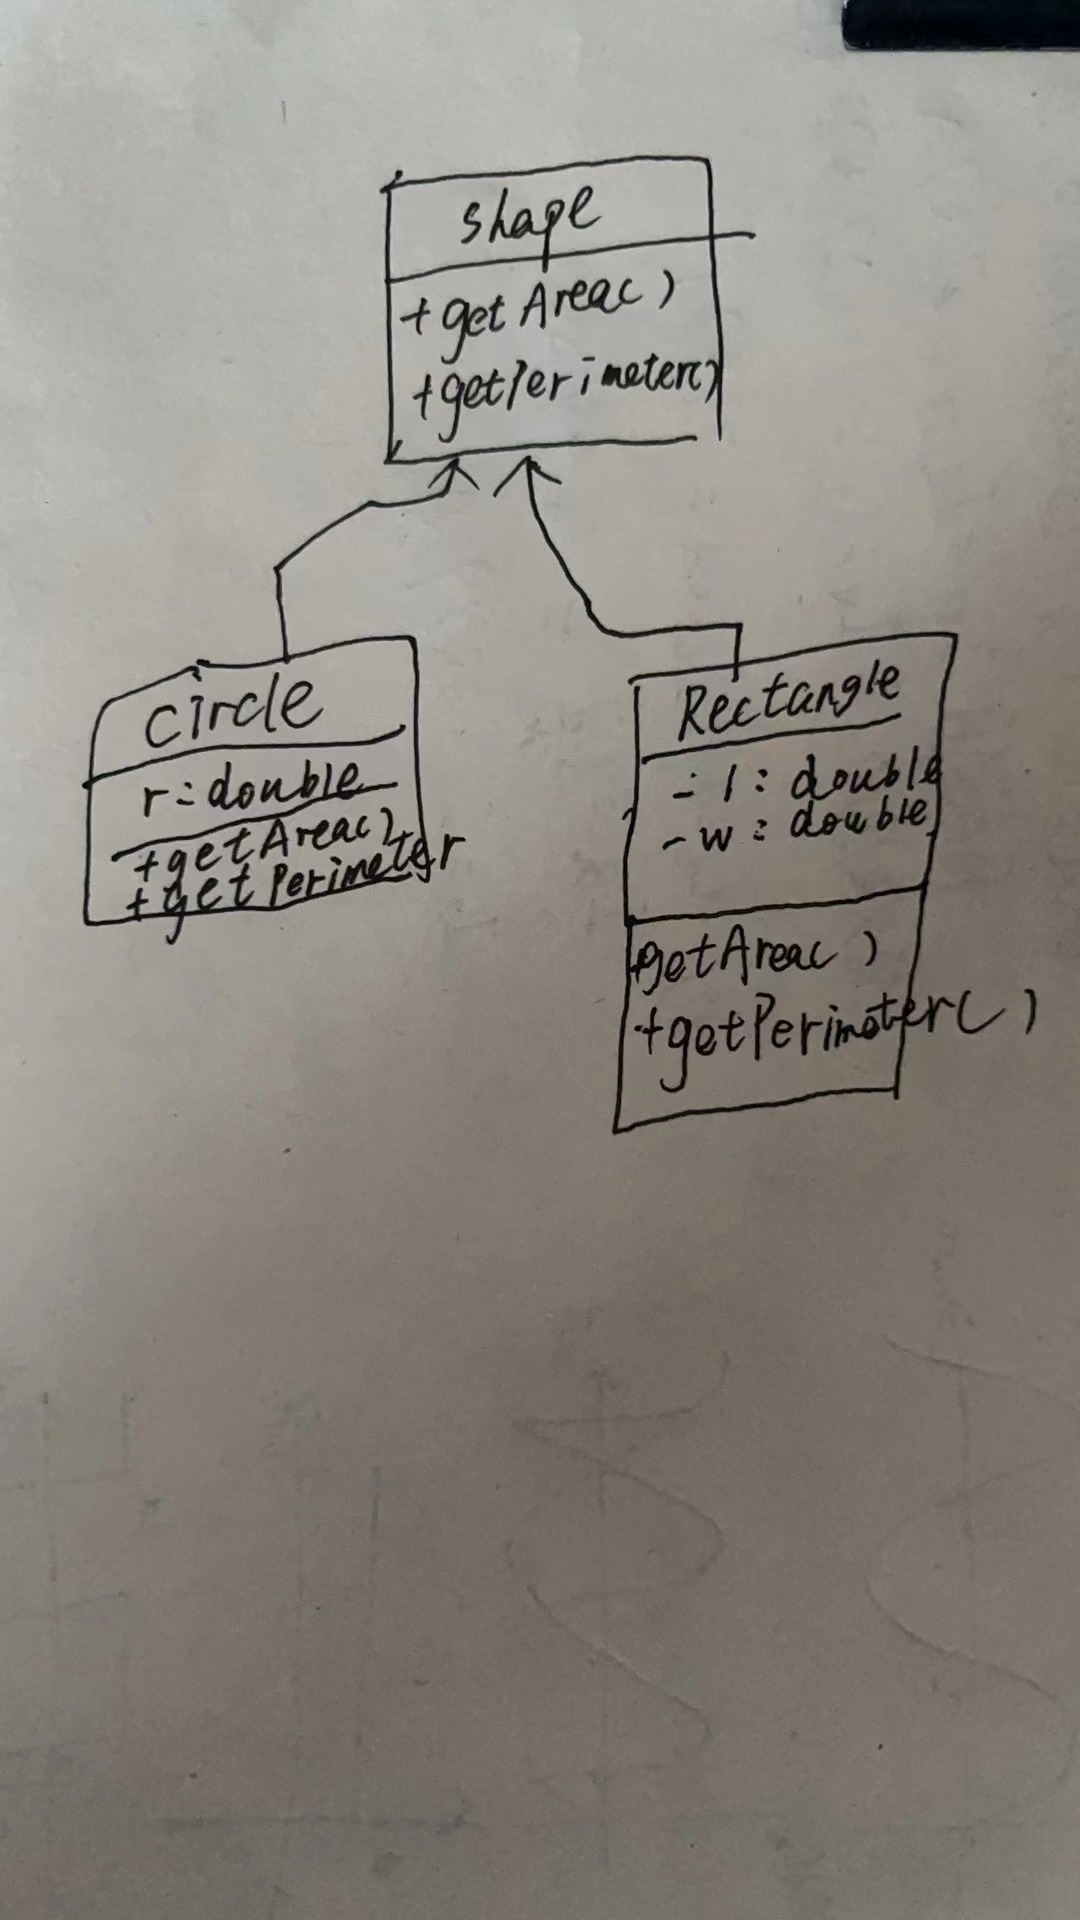 shape
+getArea()
+getPerimeter()
circle
r:double
+getArea()
+getPerimeter
Rectangle
-l:double
-w:double
+getArea()
+getPerimeter()